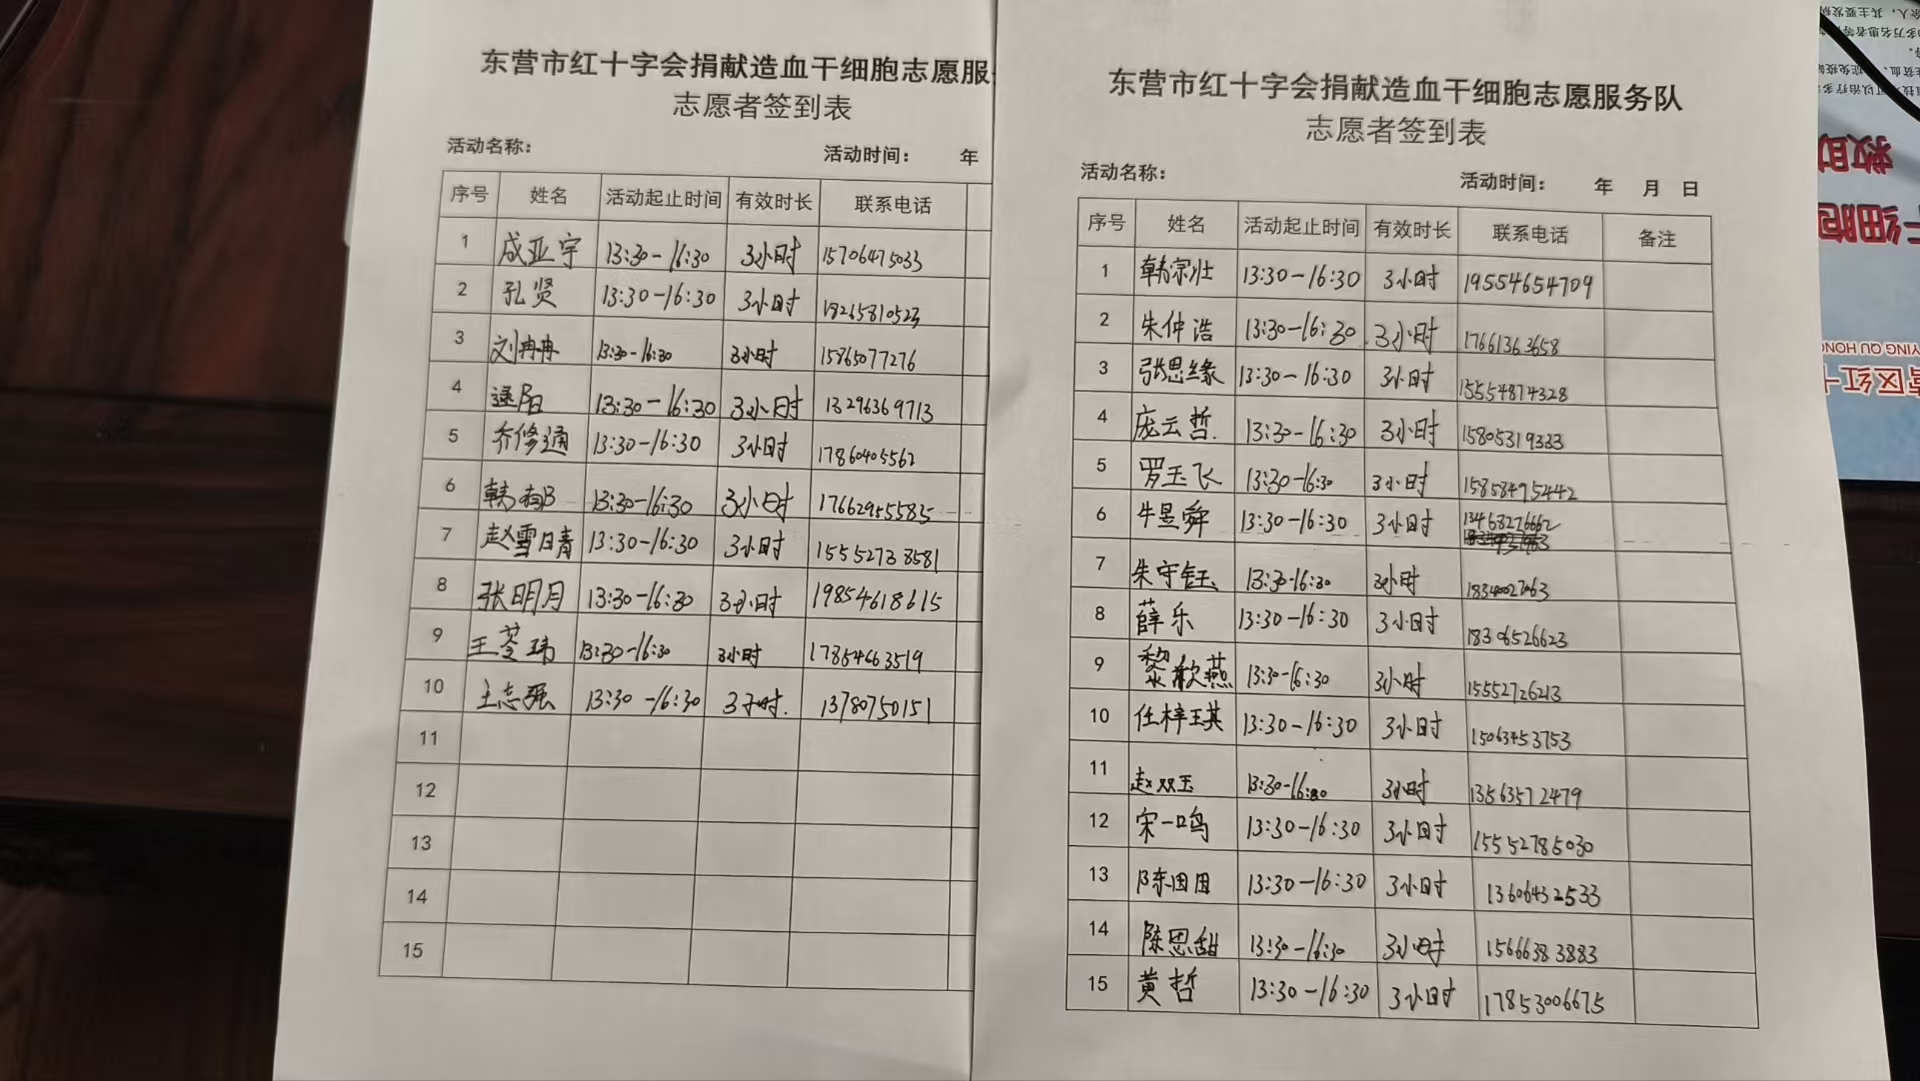 东营市红十字会捐献造血干细胞志愿服
志愿者签到表
活动名称： 活动时间： 年
序号 姓名 活动起止时间 有效时长 联系电话
1 成亚宇 13:30-16:30 3小时 15706475033
2 孔贤 13:30-16:30 3小时 18265810523
3 刘冉冉 13:30-16:30 3小时 15865077276
4 逯阳 13:30-16:30 3小时 13296369713
5 乔修通 13:30-16:30 3小时 17860405562
6 韩 13:30-16:30 3小时 17662955585
7 赵雪晴 13:30-16:30 3小时 15552738581
8 张明月 13:30-16:30 3小时 19854618615
9 王苓玮 13:30-16:30 3小时 17854663519
10 王志强 13:30-16:30 3小时. 13780750151
11
12
13
14
15
东营市红十字会捐献造血干细胞志愿服务队
志愿者签到表
活动名称： 活动时间： 年 月 日
序号 姓名 活动起止时间 有效时长 联系电话 备注
1 韩宗壮 13:30-16:30 3小时 19554654709
2 朱仲浩 13:30-16:30 3小时 17661363658
3 张思缘 13:30-16:30 3小时 15554874328
4 庞云哲. 13:30-16:30 3小时 15805319333
5 罗玉飞 13:30-16:30 3小时 15858495442
6 牛昱舜 13:30-16:30 3小时 13468276662
7 朱守钰 13:30-16:30 3小时
8 薛乐 13:30-16:30 3小时 18306526623
9 黎歆燕 13:30-16:30 3小时 15552726213
10 任梓琪 13:30-16:30 3小时 15063453753
11 赵双玉 13:30-16:30 3小时 13563572479
12 宋一鸣 13:30-16:30 3小时 15552785030
13 陈田田 13:30-16:30 3小时 13606432533
14 陈思甜 13:30-16:30 3小时 15666383883
15 黄哲 13:30-16:30 3小时 17853006675
救助
干细胞
YING QU HONG
营区红十